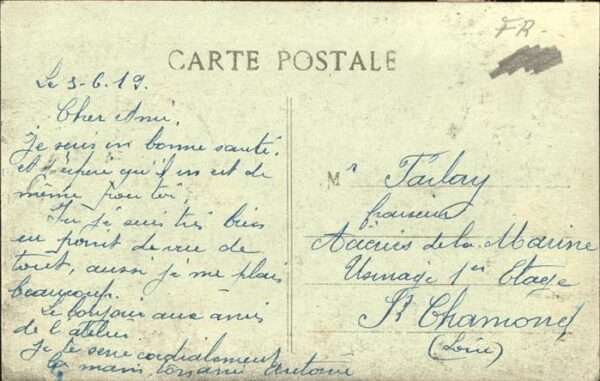 FR.
CARTE POSTALE
Le 3-6.19.
Cher Ami,
Je suis en bonne santé,
et j'espère qu'il en est de
même pour toi,
Ici je suis très bien
au point de vue de
tout, aussi je me plais
beaucoup.
Le bonjour aux amis
de l'atelier.
Je te serre cordialement
la main, ton ami Antoine
Mr Farlay
fraiseur
Aciéries de la Marine
Usinage 1er Etage
St Chamond
(Loire)